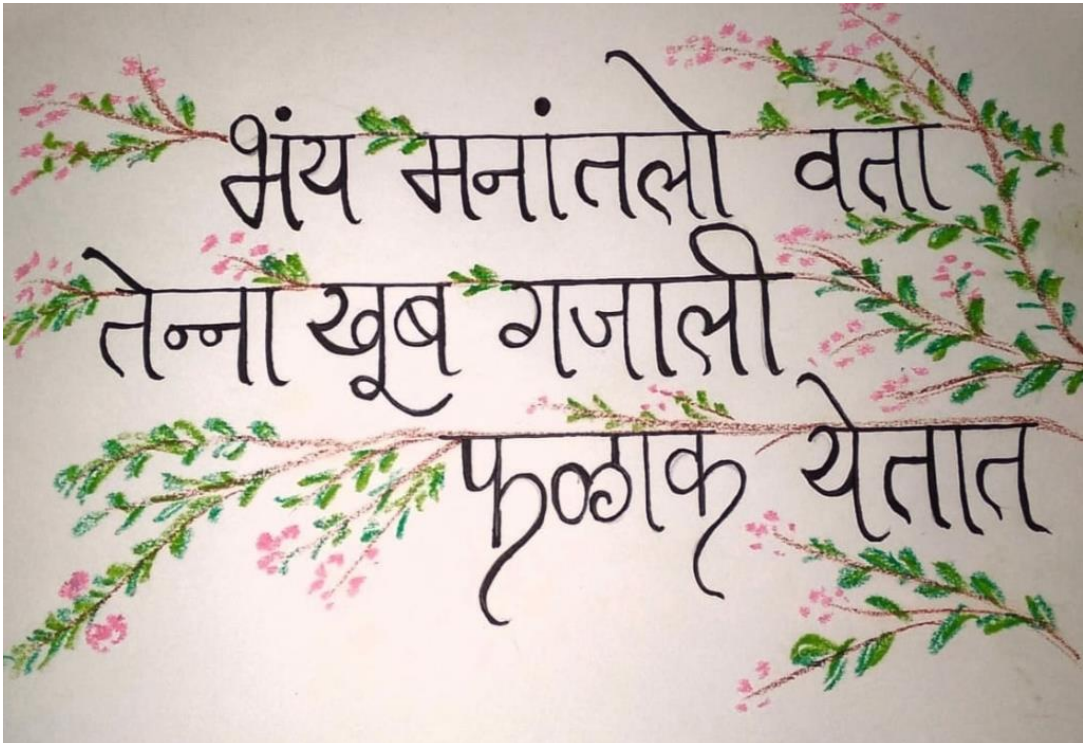 भंय मनांतलो वता
तेन्ना खूब गजाली
फळाक येतात